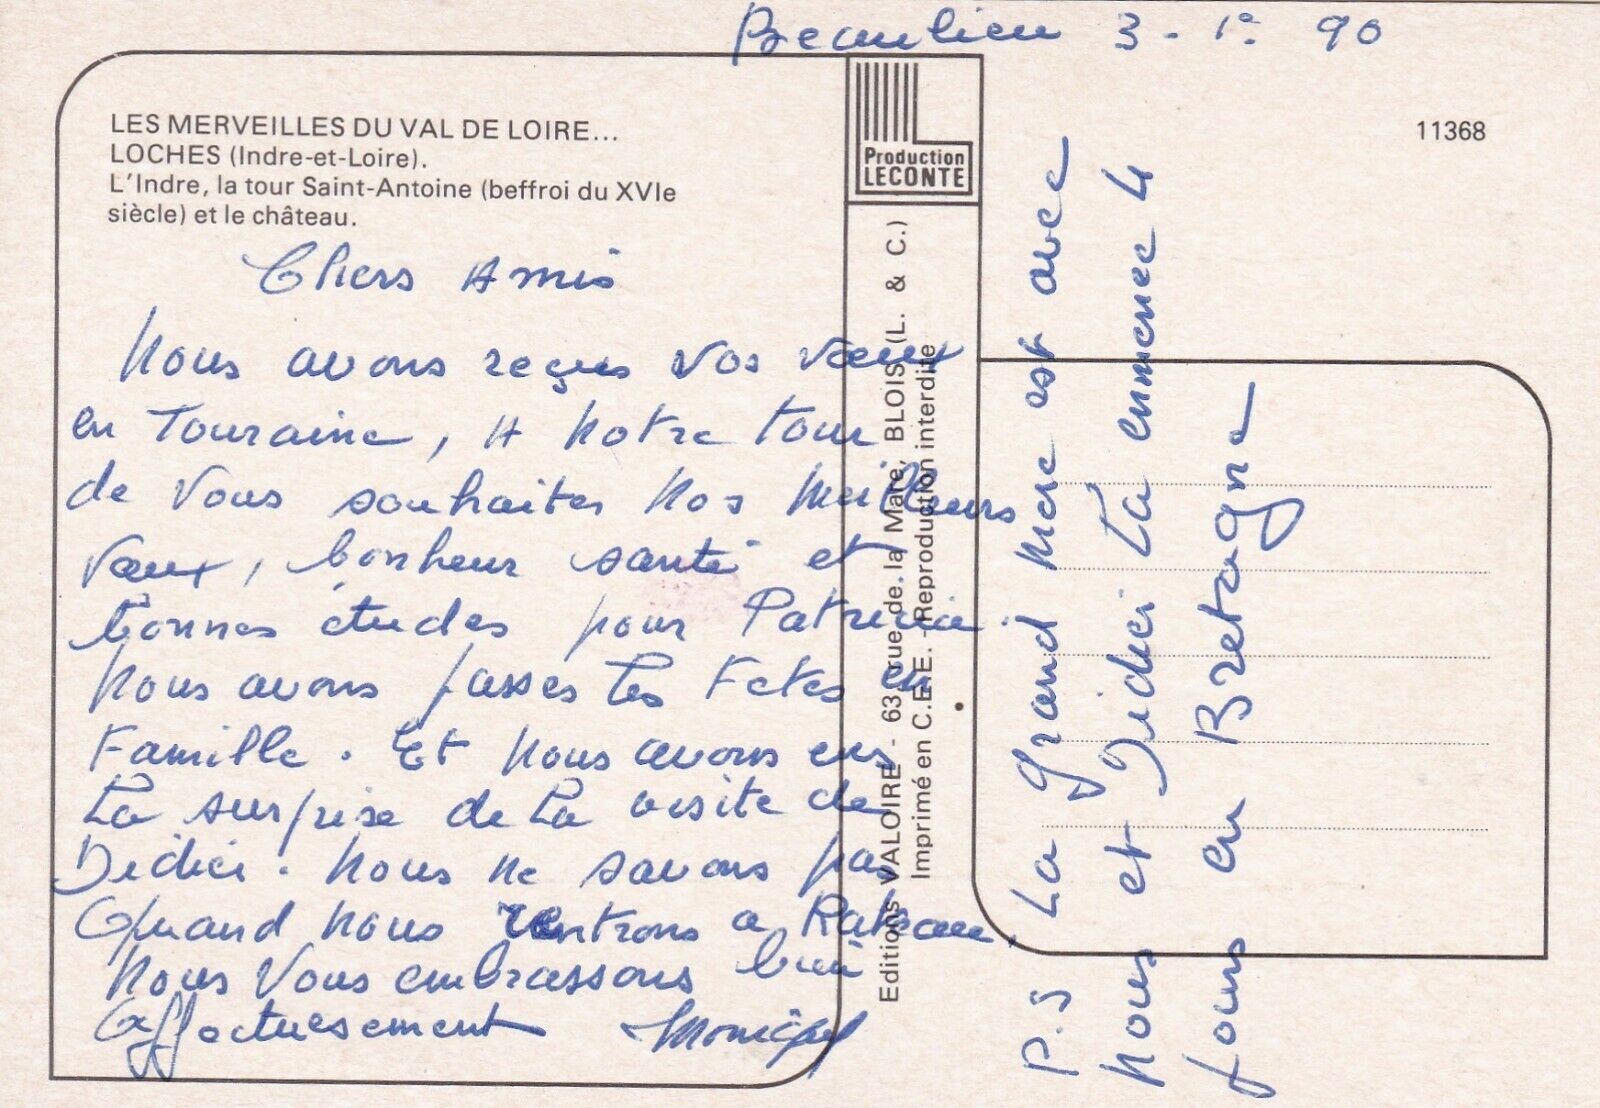 Beaulieu 3-1° 90
LES MERVEILLES DU VAL DE LOIRE...
LOCHES (Indre-et-Loire).
L'Indre, la tour Saint-Antoine (beffroi du XVIe
siècle) et le château.
11368
Production
LECONTE
Chers Amis
Nous avons reçus vos vœux
en Touraine, A notre tour
de vous souhaiter nos meilleurs
vœux, bonheur santé et
bonnes études pour Patricia.
Nous avons passes les Fetes en
Famille. Et nous avons eus
La surprise de la visite de
Didier. Nous ne savons pas
Quand nous rentrons a
Nous vous embrassons bien
affectueusement
Editions VALOIRE - 63, rue de la Mare, BLOIS (L. & C.)
Imprimé en C.E.E. - Reproduction interdite
P.S La grand mere est avec
nous et Didier La emmene 4
jours en Bretagne